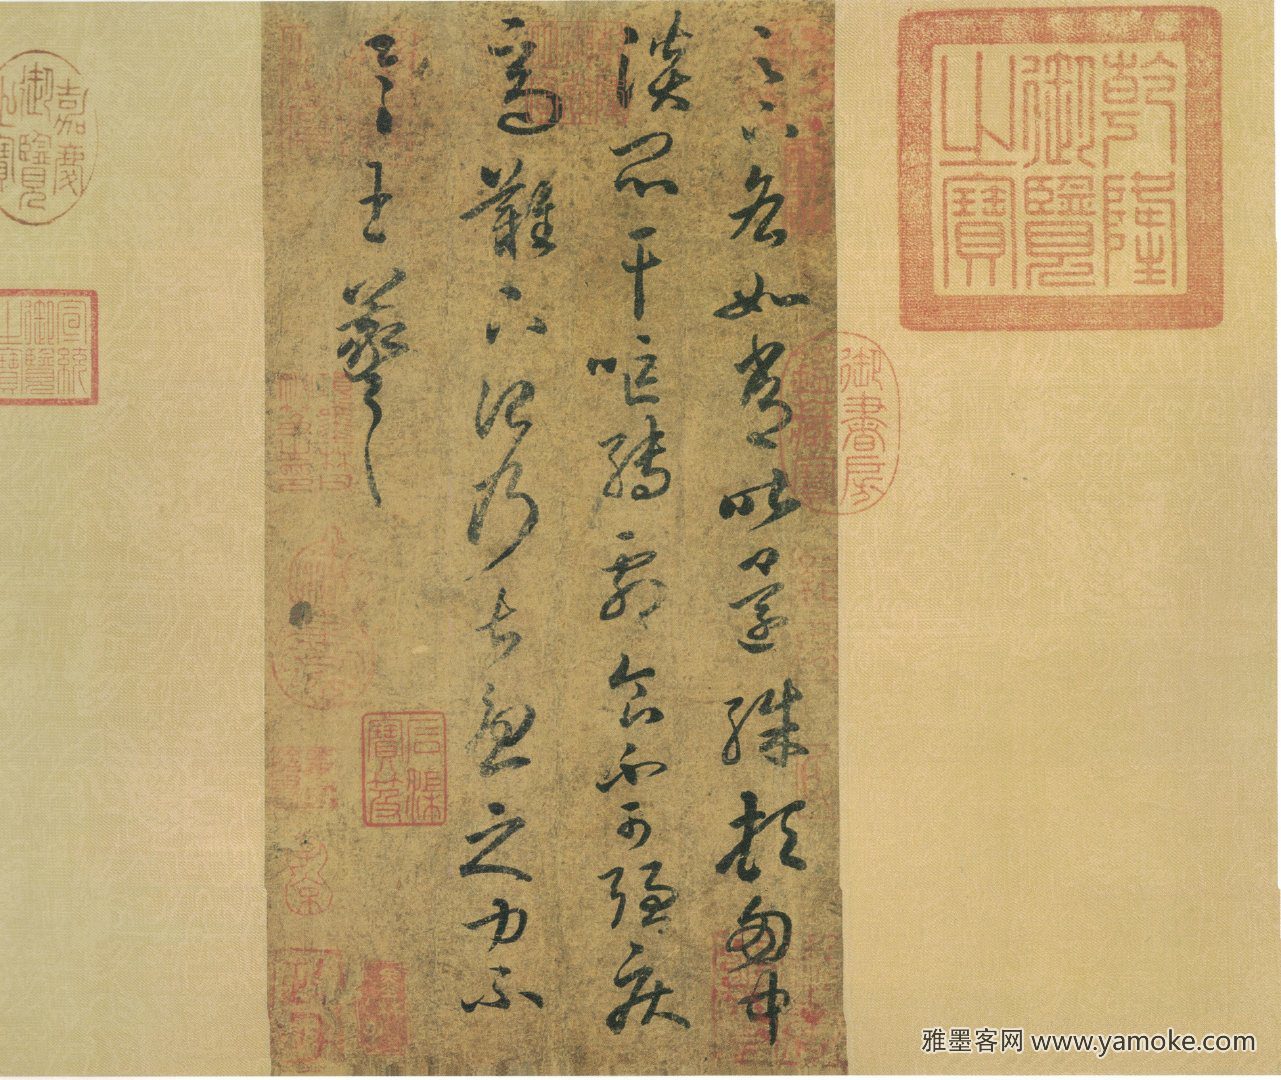 乾隆
御覽
之寶
御書房
足下各如常昨還殊頓匈中
淡悶干嘔轉劇食不可強疾
高難下治乃甚憂之力不
具王羲之
石渠
寶笈
嘉慶
御覽
之寶
宣統
御覽
之寶
雅墨客网 www.yamoke.com